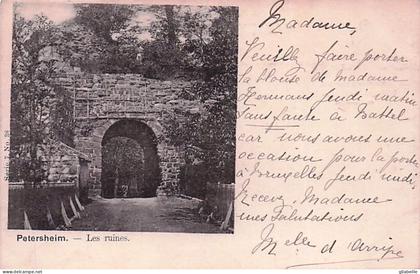 Madame,
Veuillez faire porter
la blouse de madame
Hermans jeudi matin
sans faute à Hasselt
car nous avons une
occasion pour la porter
à Bruxelles jeudi midi
Recevez Madame
mes Salutations
Melle d'
Serie 7, No. 36
Petersheim. — Les ruines.